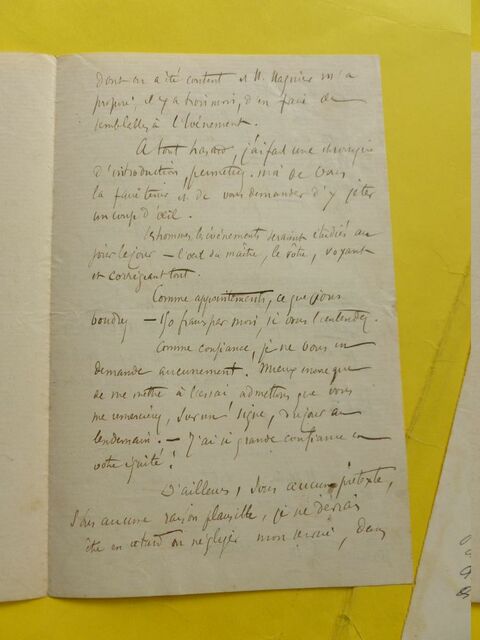 dont on a été content et M. Magnier m'a
proposé, il y a trois mois, d'en faire de
semblables à l'Événement.
A tout hasard, j'ai fait une chronique
d'introduction, permettez-moi de vous
la faire tenir et de vous demander d'y jeter
un coup d'œil.
Les hommes, les événements seraient étudiés au
jour le jour — l'œil du maître, le vôtre, voyant
et corrigeant tout.
Comme appointements, ce que vous
voudrez — 150 francs par mois, si vous l'entendez.
Comme confiance, je ne vous en
demande aucunement. Mieux encore que
de me mettre à l'essai admettons que vous
me remerciez, sur un signe, du jour au
lendemain. — J'ai si grande confiance en
votre équité!
D'ailleurs, sous aucun prétexte,
sous aucune raison plausible, je ne devrais
être en retard ou négliger mon service, deux